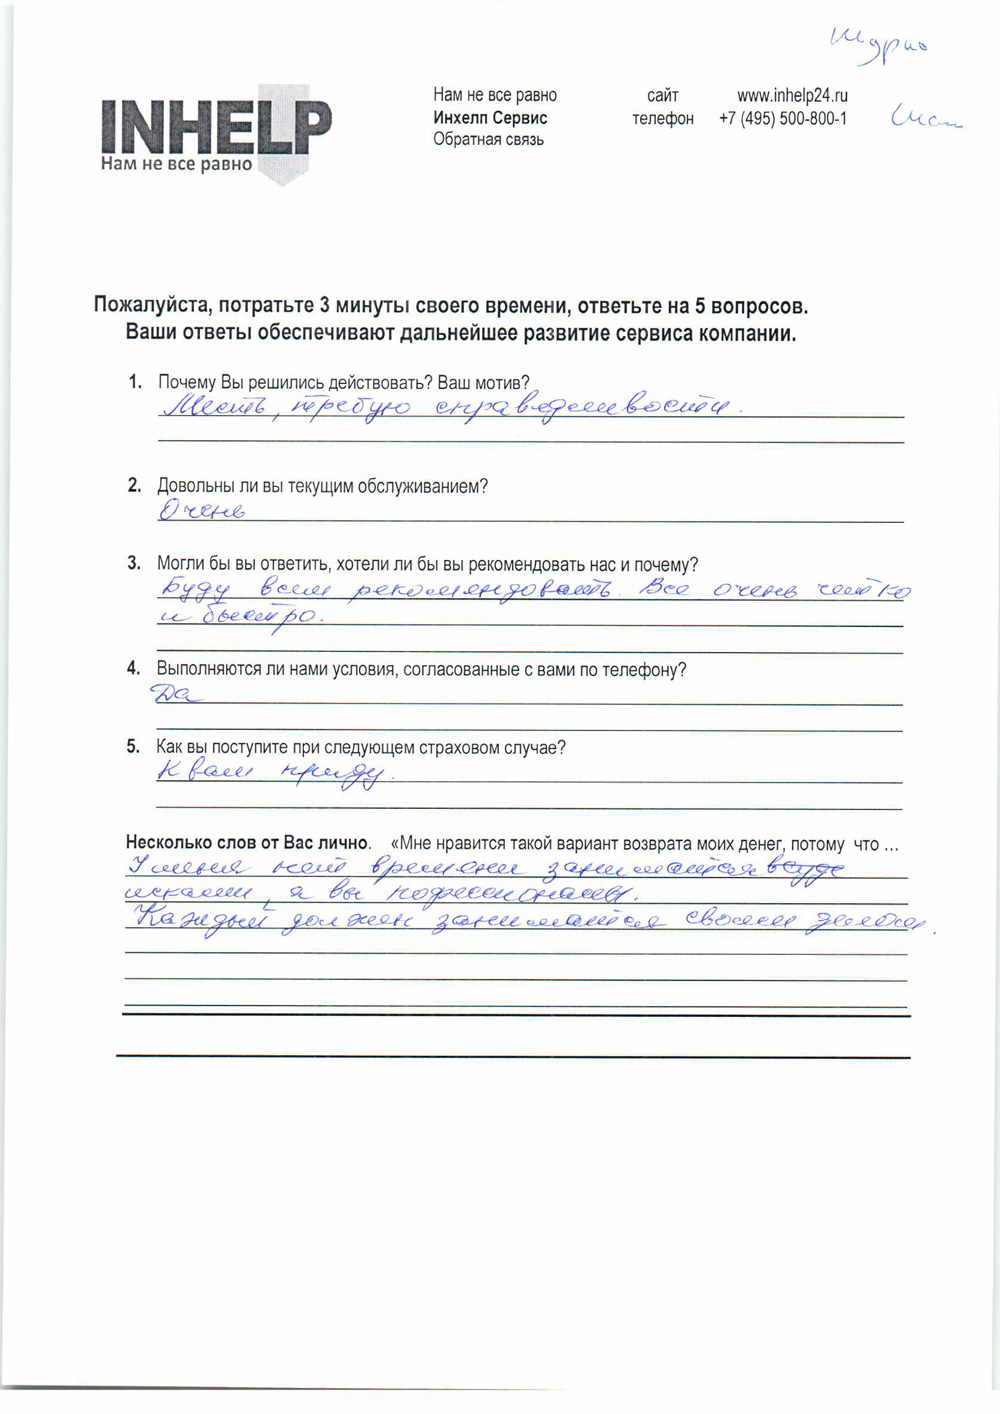 INHELP
Нам не все равно
Нам не все равно
Инхелп Сервис
Обратная связь
сайт www.inhelp24.ru
телефон +7 (495) 500-800-1
Пожалуйста, потратьте 3 минуты своего времени, ответьте на 5 вопросов.
Ваши ответы обеспечивают дальнейшее развитие сервиса компании.
1. Почему Вы решились действовать? Ваш мотив?
Месть, требую справедливости.
2. Довольны ли вы текущим обслуживанием?
Очень
3. Могли бы вы ответить, хотели ли бы вы рекомендовать нас и почему?
Буду всем рекомендовать. Все очень четко
и быстро.
4. Выполняются ли нами условия, согласованные с вами по телефону?
Да
5. Как вы поступите при следующем страховом случае?
К вам приду.
Несколько слов от Вас лично. «Мне нравится такой вариант возврата моих денег, потому что ...
У меня нет времени заниматся
исками, а вы пофессионалы.
Каждый должен заниматся своим делом.